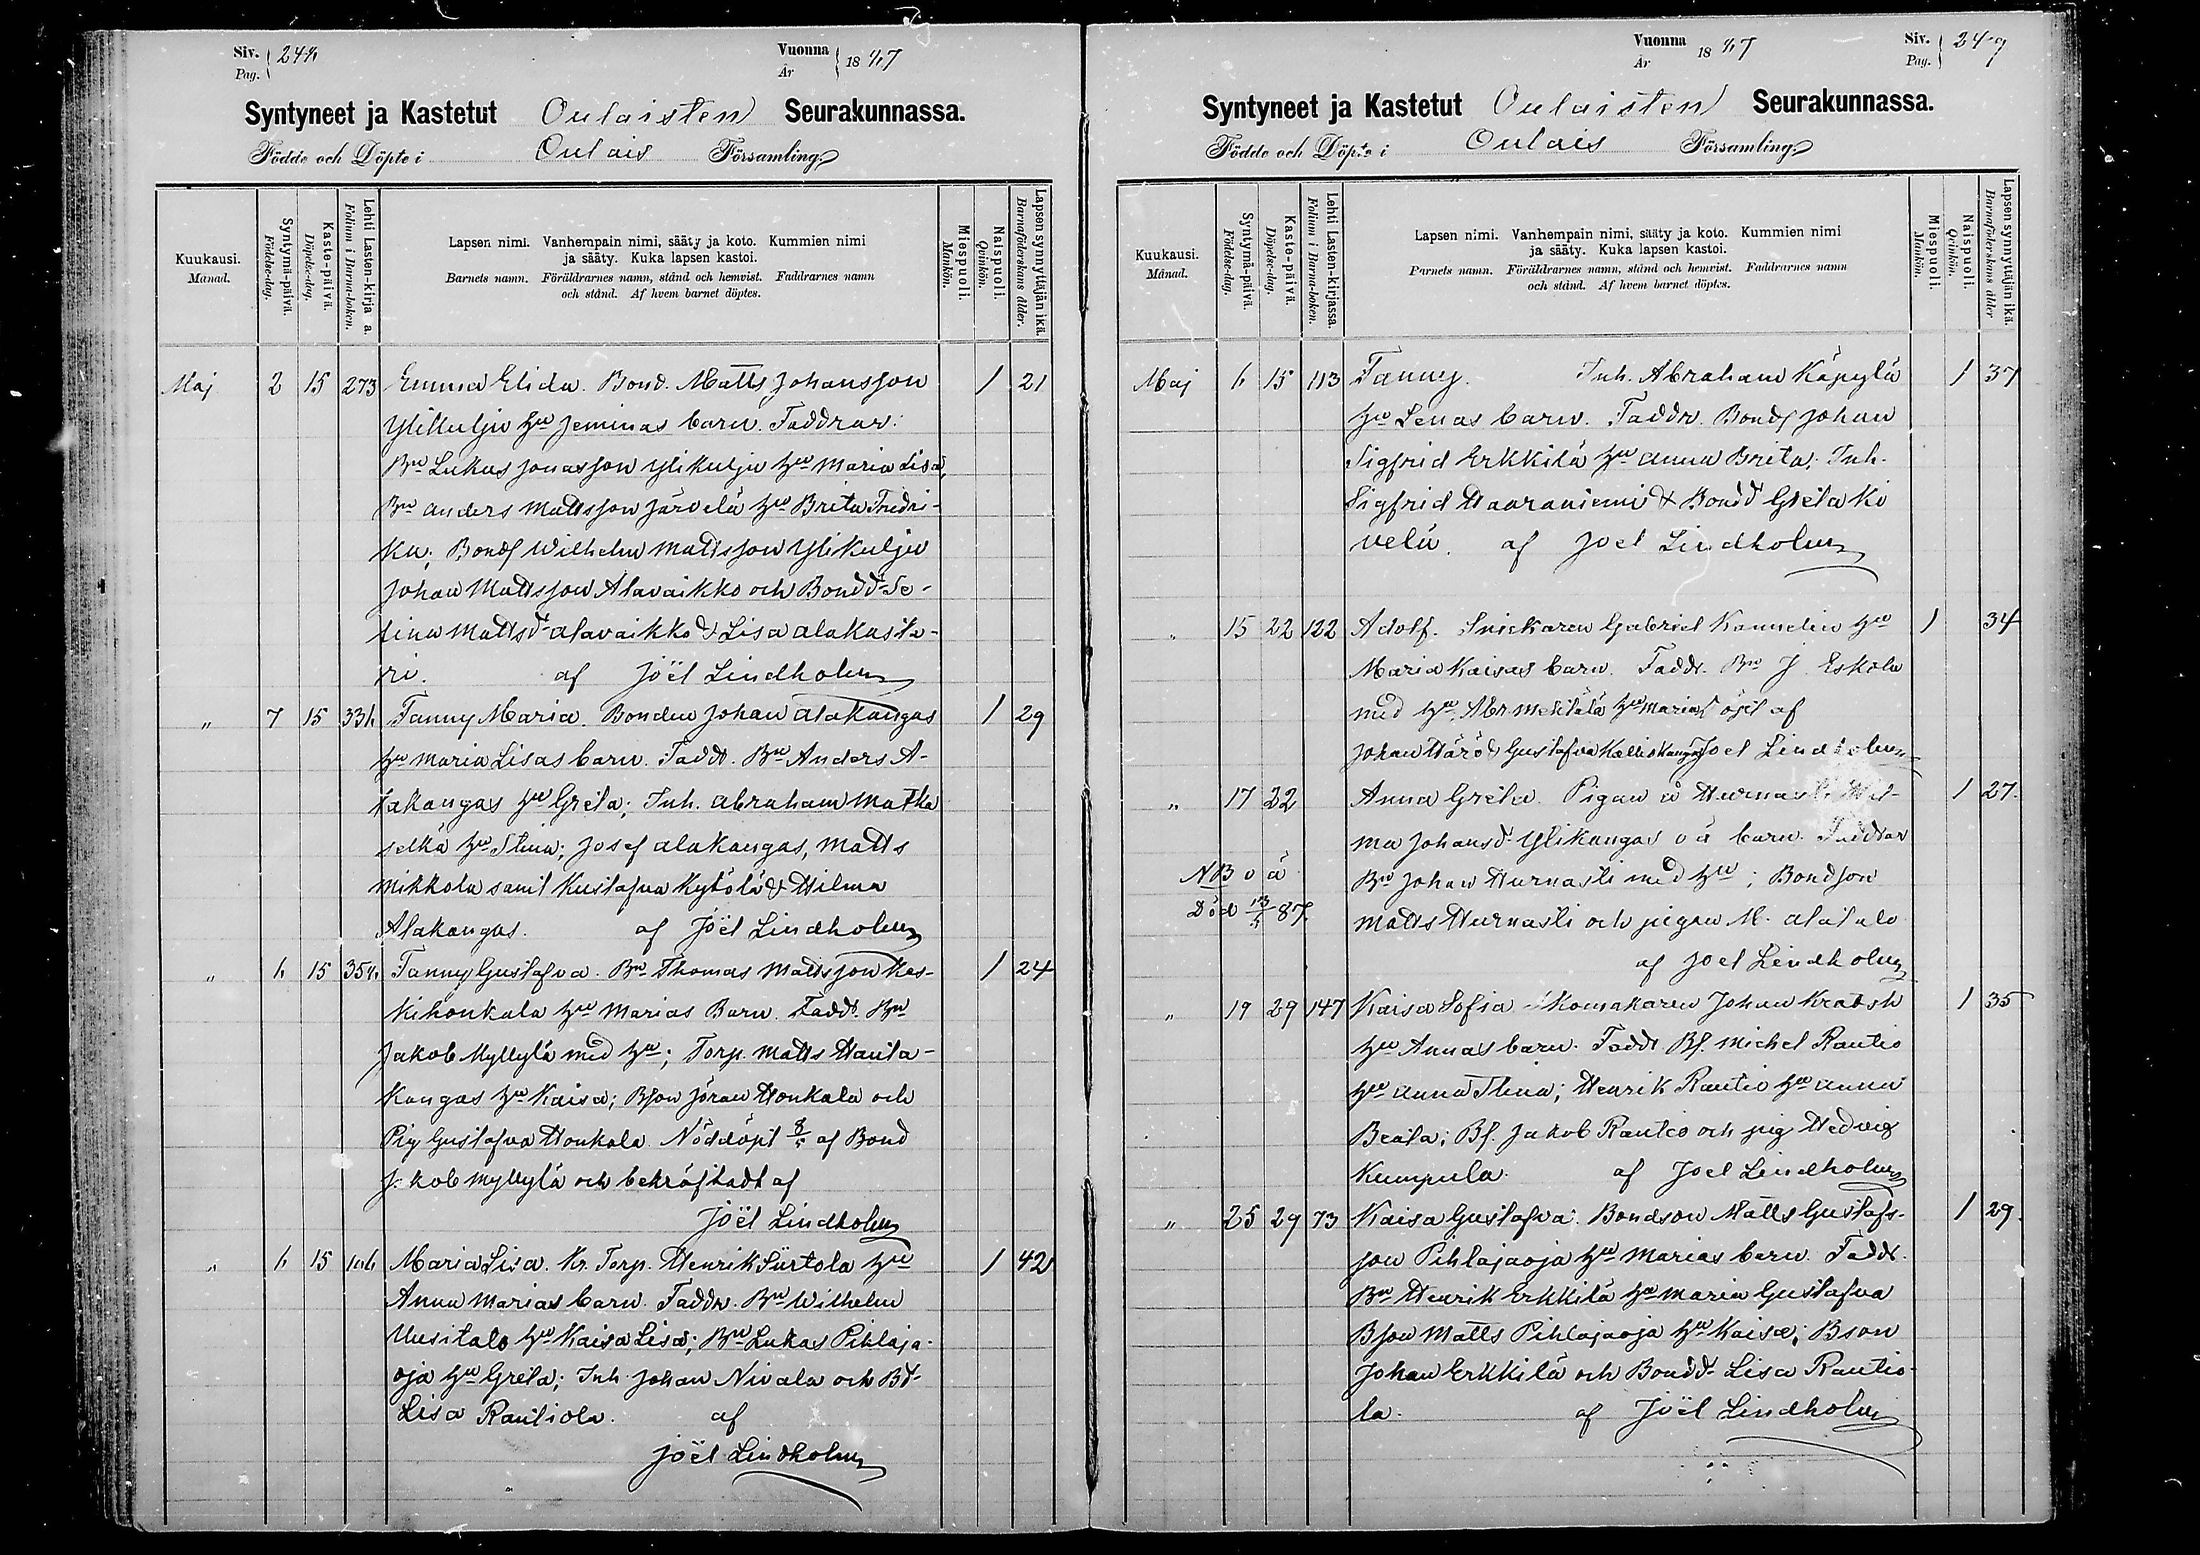 Siv.
Pag.
Vuonna
År
18
Syntyneet ja Kastetut Oulaisten Seurakunnassa.
Födde och Döpte i Oulais Församling
Kuukausi.
Månad.
Syntymä-päivä.
Födelse-dag.
Kaste-päivä.
Döpelse-dag.
Lehti Lasten-kirja a.
Folium i Barna-boken.
Lapsen nimi. Vanhempain nimi, sääty ja koto. Kummien nimi
ja sääty. Kuka lapsen kastoi.
Barnets namn. Föräldrarnes namn, stånd och hemvist. Faddrarnes namn
och stånd. Af hvem barnet döptes.
Miespuoli.
Mankön.
Naispuoli.
Qvinkön.
Lapsen synnyttäjän ikä.
Barnaföderskans ålder.
Maj 2 15 273 Emma Elida. Bond. Matts Johansson 1 21
Ylikulju hu Jeminas barn. Faddrar:
Bn Lukas Jonasson Ylikulju hu Maria Lisa,
Bn Anders Mattsson Järvelä hu Brita Fredri-
ka; Bonds Wilhelm Mattsson Ylikulju
Johan Mattsson Alavaikko och Bondd Se-
lina Mattsd Alavaikko & Lisa Alakasta-
ri. af Joël Lindholm
" 7 15 Fanny Maria. Bonden Johan Alakangas 1 29
hu Maria Lisas barn. Faddr. Bn Anders A-
lakangas hu Greta; Inh. Abraham Matka
selkä hu Stina; Josef Alakangas, Matts
Mikkola samt Kustafva Kytölä & Hilma
Alakangas. af Joël Lindholm
" 6 15 Fanny Gustafva. Bn Thomas Mattsson Kes- 1 24
kihonkala hu Marias Barn. Faddr. Bn
Jakob Myllylä med hu; Torp. Matts Hauta-
kangas hu Kaisa; Bson Jöran Honkala och
Pig Gustafva Honkala. Nöddöpt 8/5 af Bond
Jakob Myllylä och bekräftadt af
Joël Lindholm
" 6 15 Maria Lisa. Kr. Torp. Henrik Siirtola hu 1 42
Anna Marias barn. Faddr. Bn Wilhelm
Uusitalo hu Kaisa Lisa; Bn Lukas Pihlaja-
oja hu Greta; Inh. Johan Nivala och Bd
Lisa Rautiola. af
Joël Lindholm
Vuonna
År
18
Siv.
Pag.
Syntyneet ja Kastetut Oulaisten Seurakunnassa.
Födde och Döpte i Oulais Församling
Kuukausi.
Månad.
Syntymä-päivä.
Födelse-dag.
Kaste-päivä.
Döpelse-dag.
Lehti Lasten-kirjassa.
Folium i Barna-boken.
Lapsen nimi. Vanhempain nimi, sääty ja koto. Kummien nimi
ja sääty. Kuka lapsen kastoi.
Barnets namn. Föräldrarnes namn, stånd och hemvist. Faddrarnes namn
och stånd. Af hvem barnet döptes.
Miespuoli.
Mankön.
Naispuoli.
Qvinkön.
Lapsen synnyttäjän ikä.
Barnaföderskans ålder
Maj 6 15 113 Fanny. Inh. Abraham Käpylä 1 37
hu Lenas barn. Faddr. Bonds Johan
Sigfrid Erkkilä hu Anna Brita; Inh.
Sigfrid Haaraniemi & Bondd Greta Ki
velä. af Joel Lindholm
" 15 22 122 Adolf. Snickaren Gabriel Kannelin hu 1 34
Maria Kaisas barn. Faddr. Bn J. Eskola
med hu, Abr hu Maria döpt af
Johan Gustafva Kalliokangas Joel Lindholm
" 17 22 Anna Greta. Pigan å Hurnasti Hel- 1 27.
ma Johansd Ylikangas o ä barn. Faddrar
NB o ä Bn Johan Hurnasti med hu; Bondson
Död 87. Matts Hurnasti och pigan M. Alatalo
af Joel Lindholm
" 19 29 147 Kaisa Sofia. Skomakaren Johan Kratsh 1 35
hu Annas barn. Faddr Bf. Michel Rautio
hu Anna Stina; Henrik Rautio hu Anna
Beata; Bf. Jakob Rautio och pig Hedvig
Kumpula. af Joel Lindholm
" 25 29 73 Kaisa Gustafva. Bondson Matts Gustafs- 1 29.
son Pihlajaoja hu Marias barn. Faddr.
Bn Henrik Erkkilä hu Maria Gustafva
Bson Matts Pihlajaoja hu Kaisa; Bson
Johan Erkkilä och Bondd Lisa Rautio-
la. af Joël Lindholm